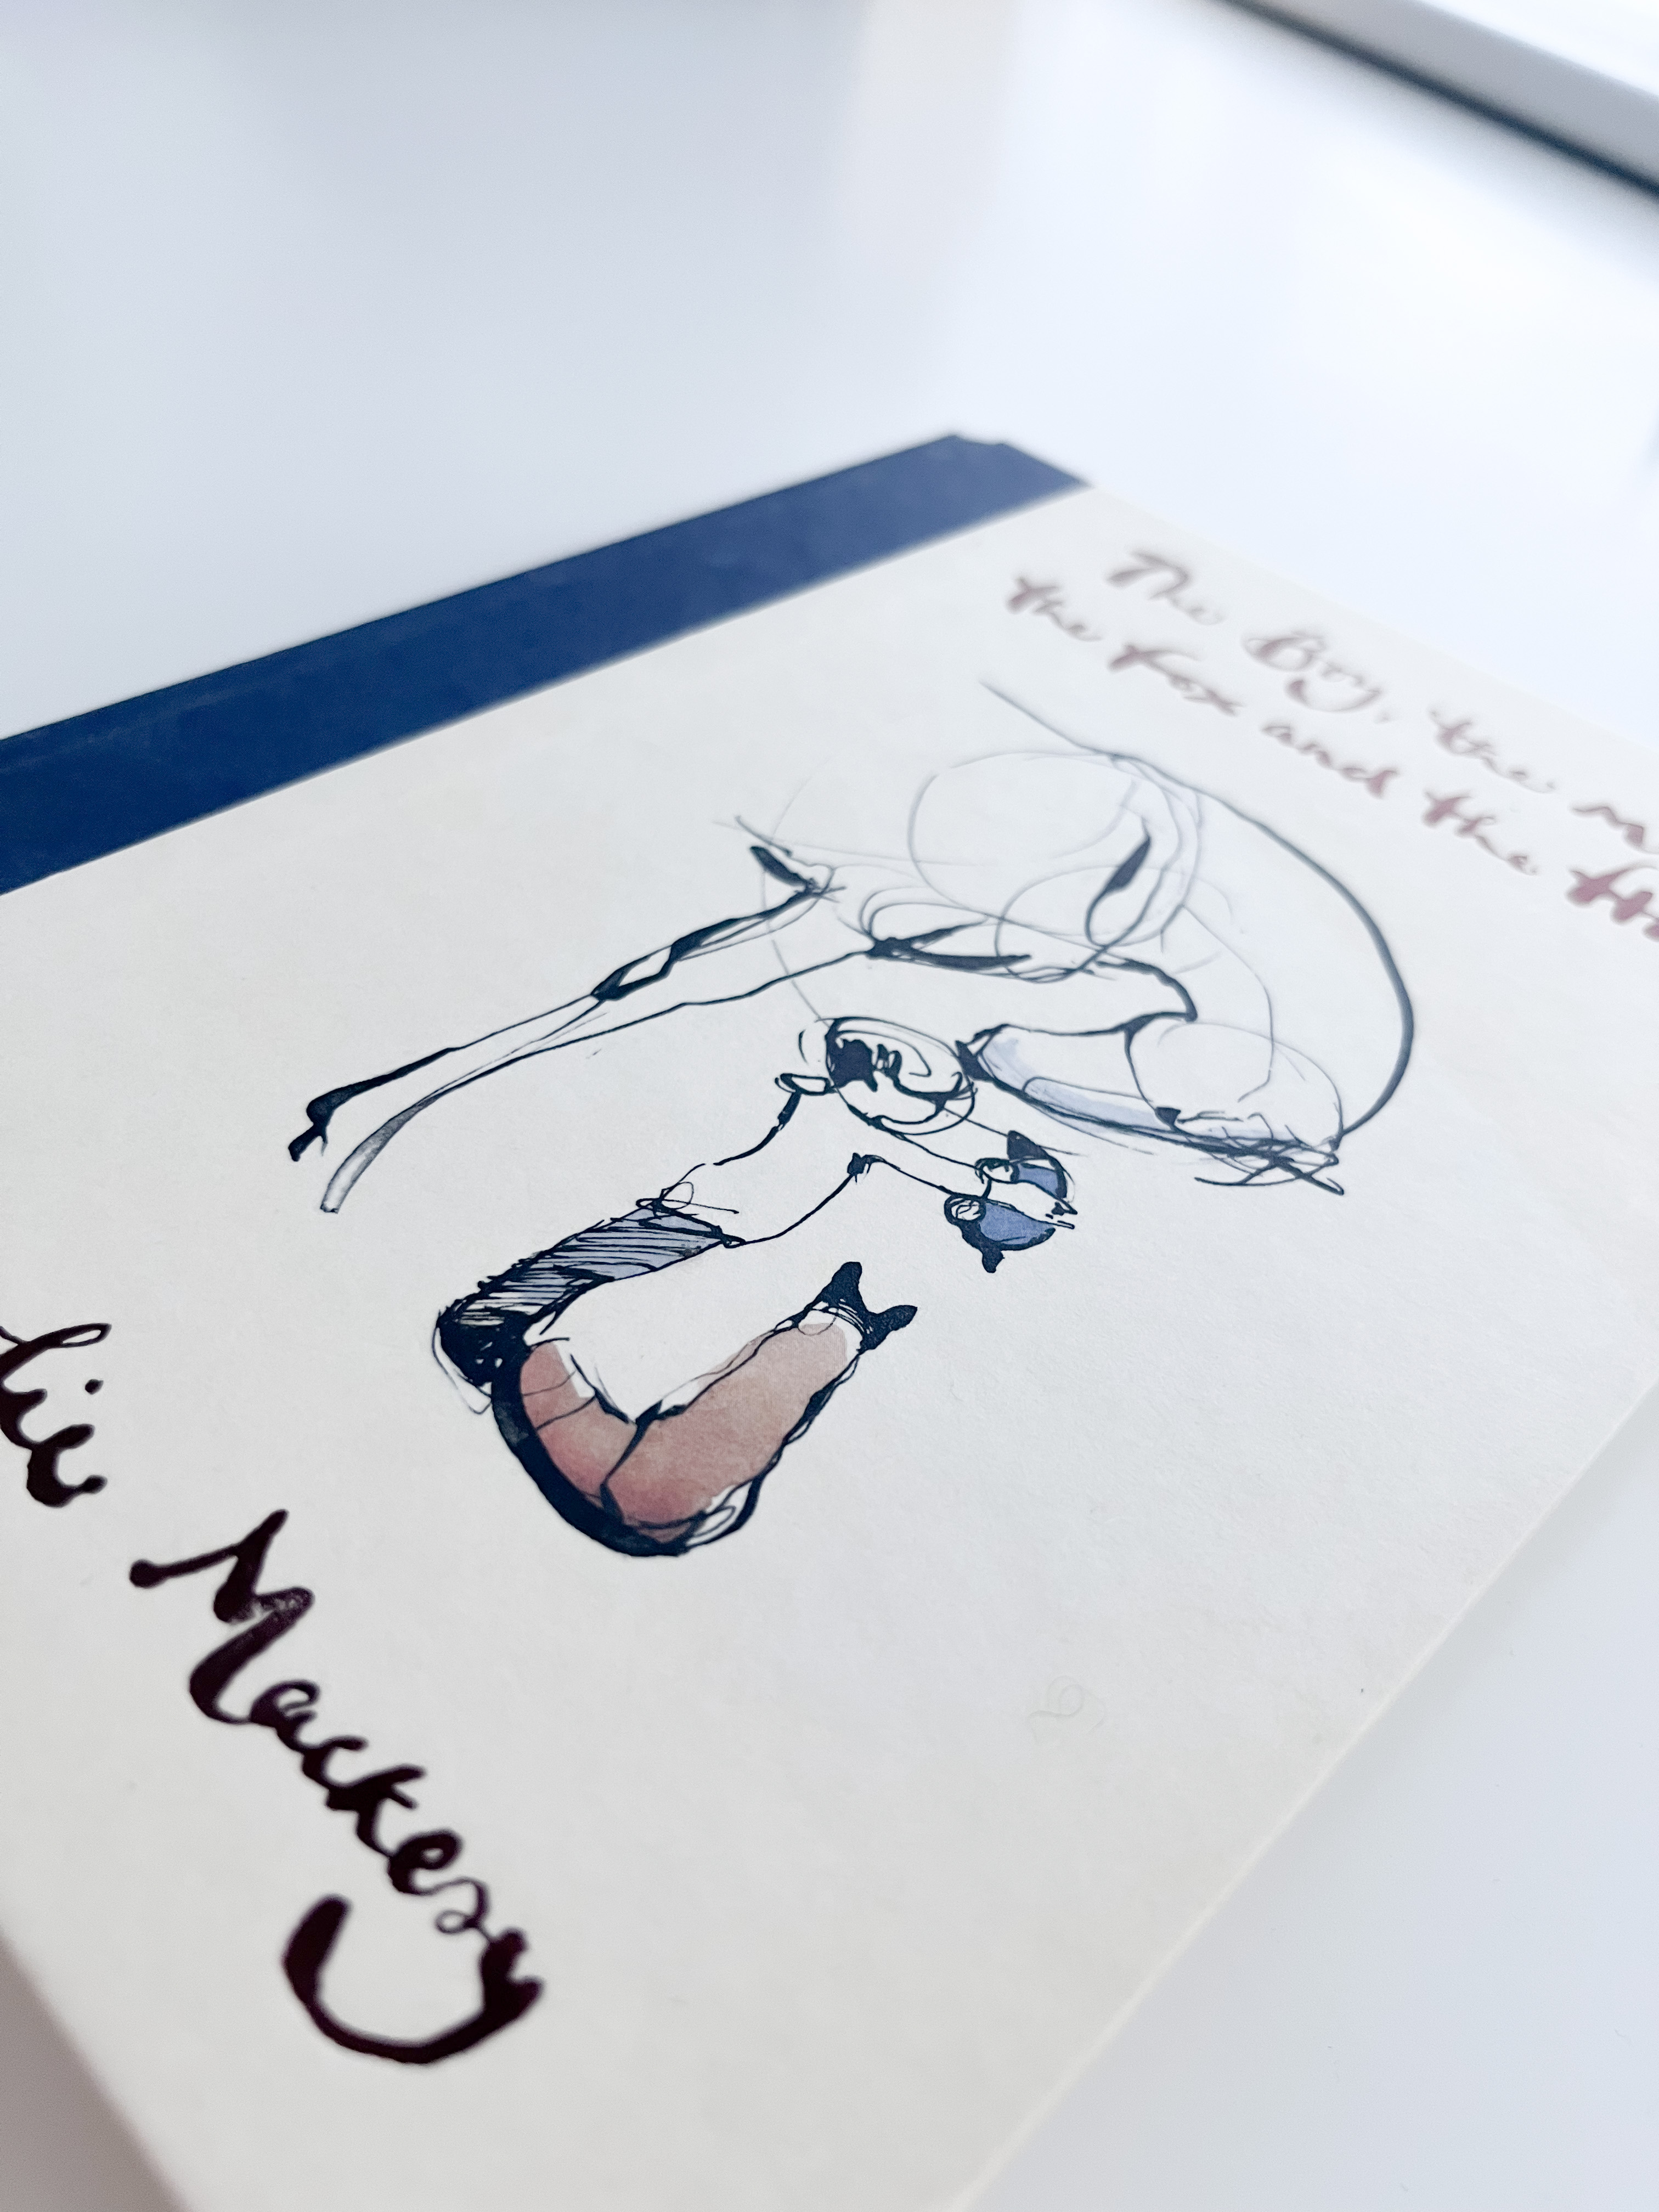 The Boy, the m
the Fox and the Ho
lie Mackesy